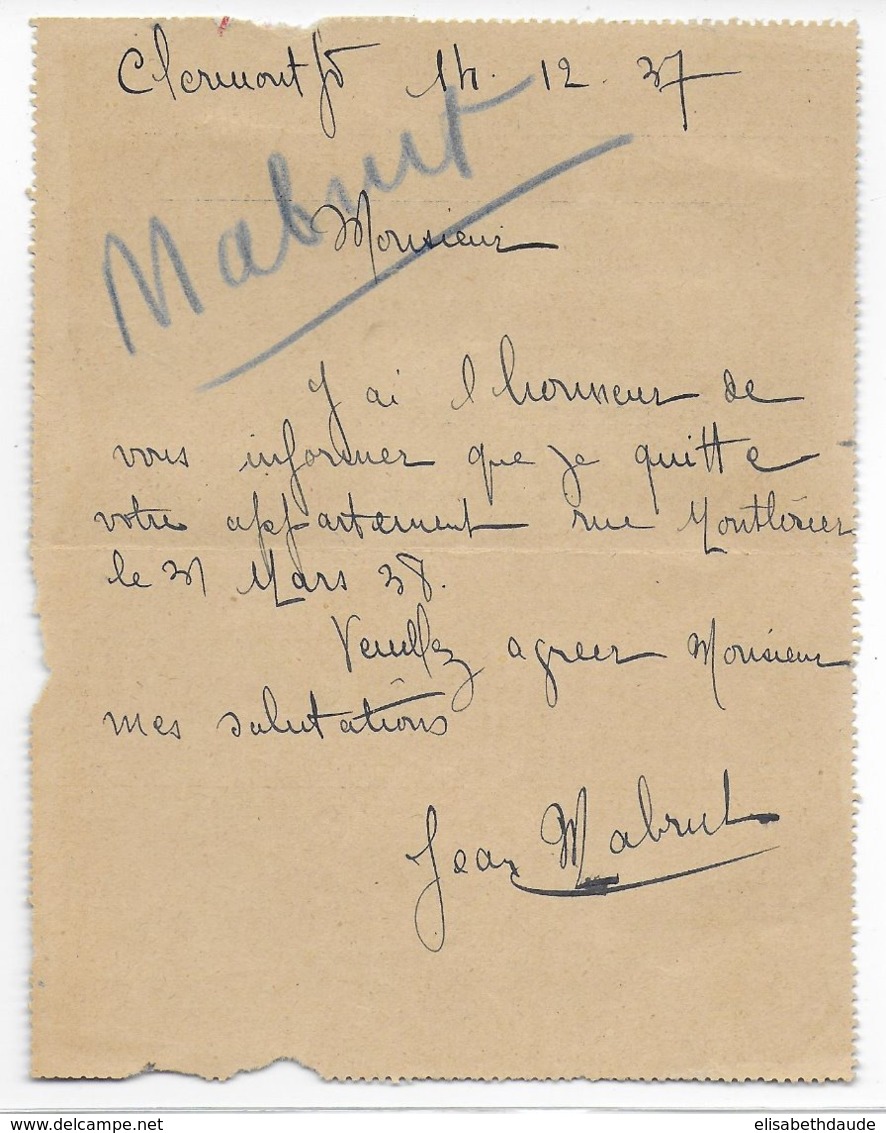 Clermont fd 14. 12. 37
Mabrut
Monsieur
J'ai l honneur de
vous informer que je quitte
votre appartement rue
le 31 Mars 38.
Veuillez agreer Monsieur
mes salutations
Jean Mabrut
elisabethdaude